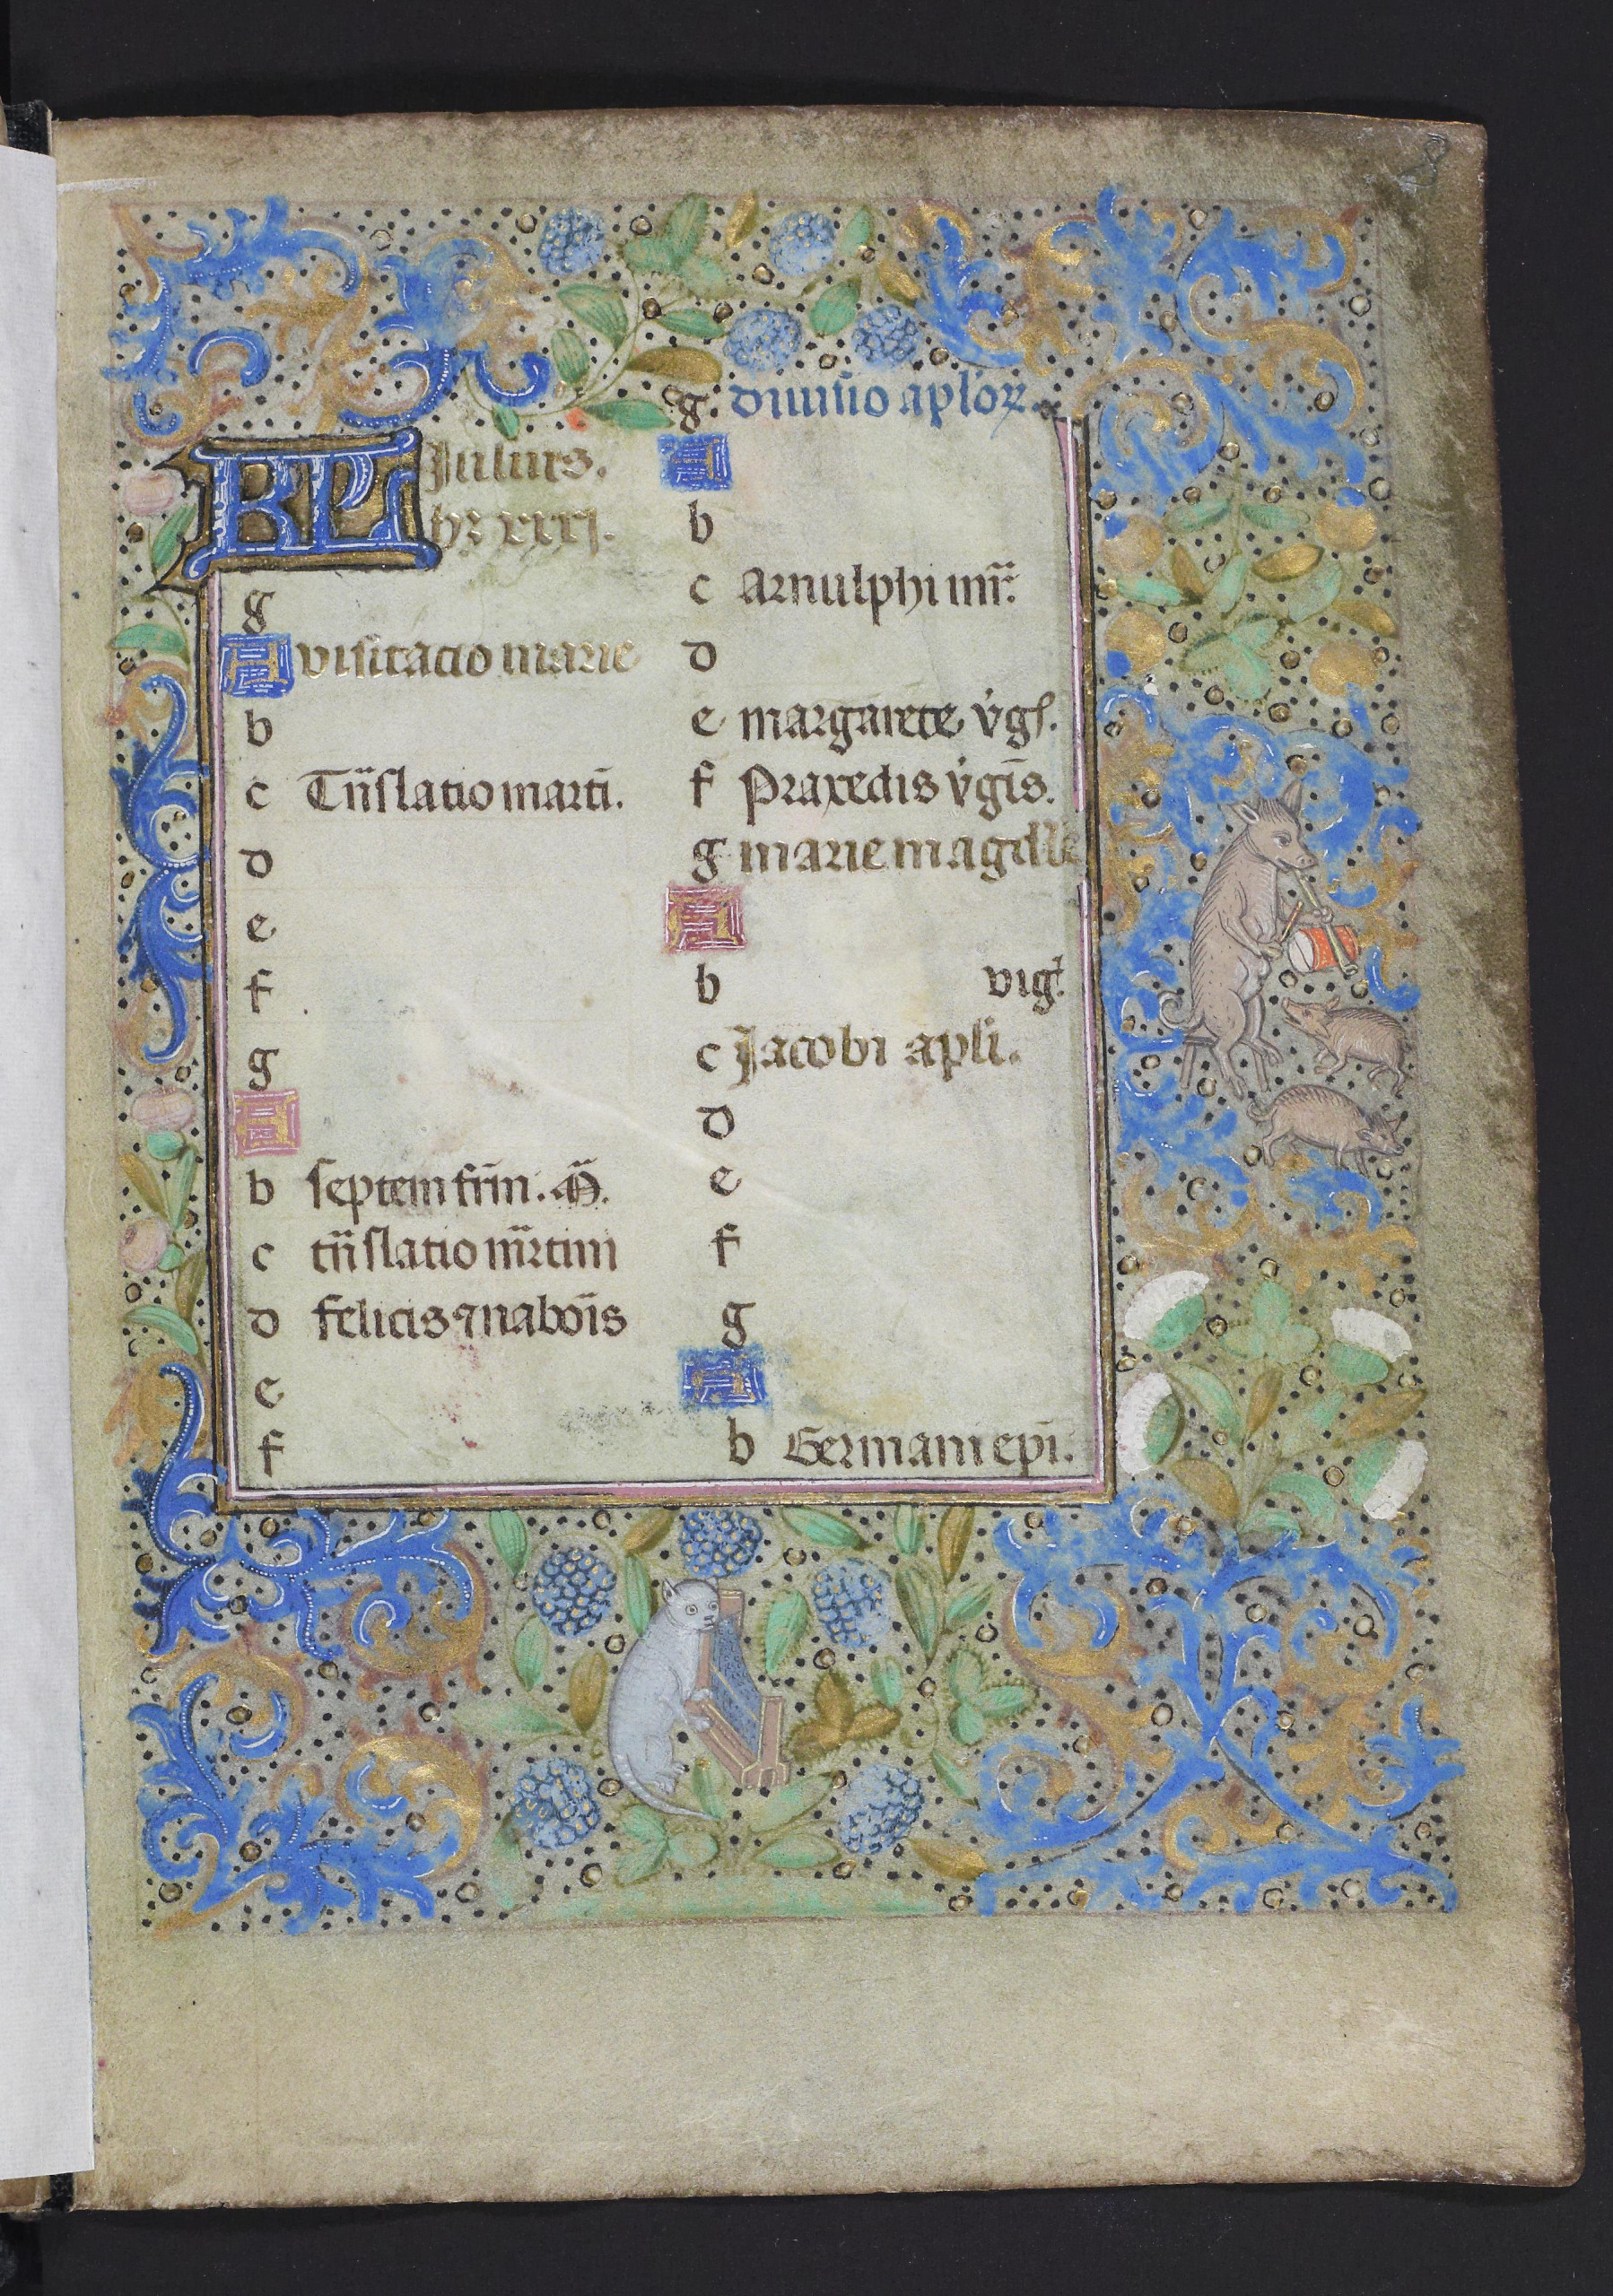 KL Julius.
hr xxxj.
g
A visitacio marie
b
c Trāslatio marti.
d
e
f
g
A
b septem frm̄. m̄.
c trāslatio m̄rtini
d felicis ⁊ nabōis
e
f
g. diuisio aplōꝝ.
A
b
c Arnulphi mr̄.
d
e margarete v̓gſ.
f Praxedis v̓gīs.
g marie magdl̄e
A
b vigl̓.
c Jacobi apl̄i.
d
e
f
g
A
b Germani ep̄i.
8